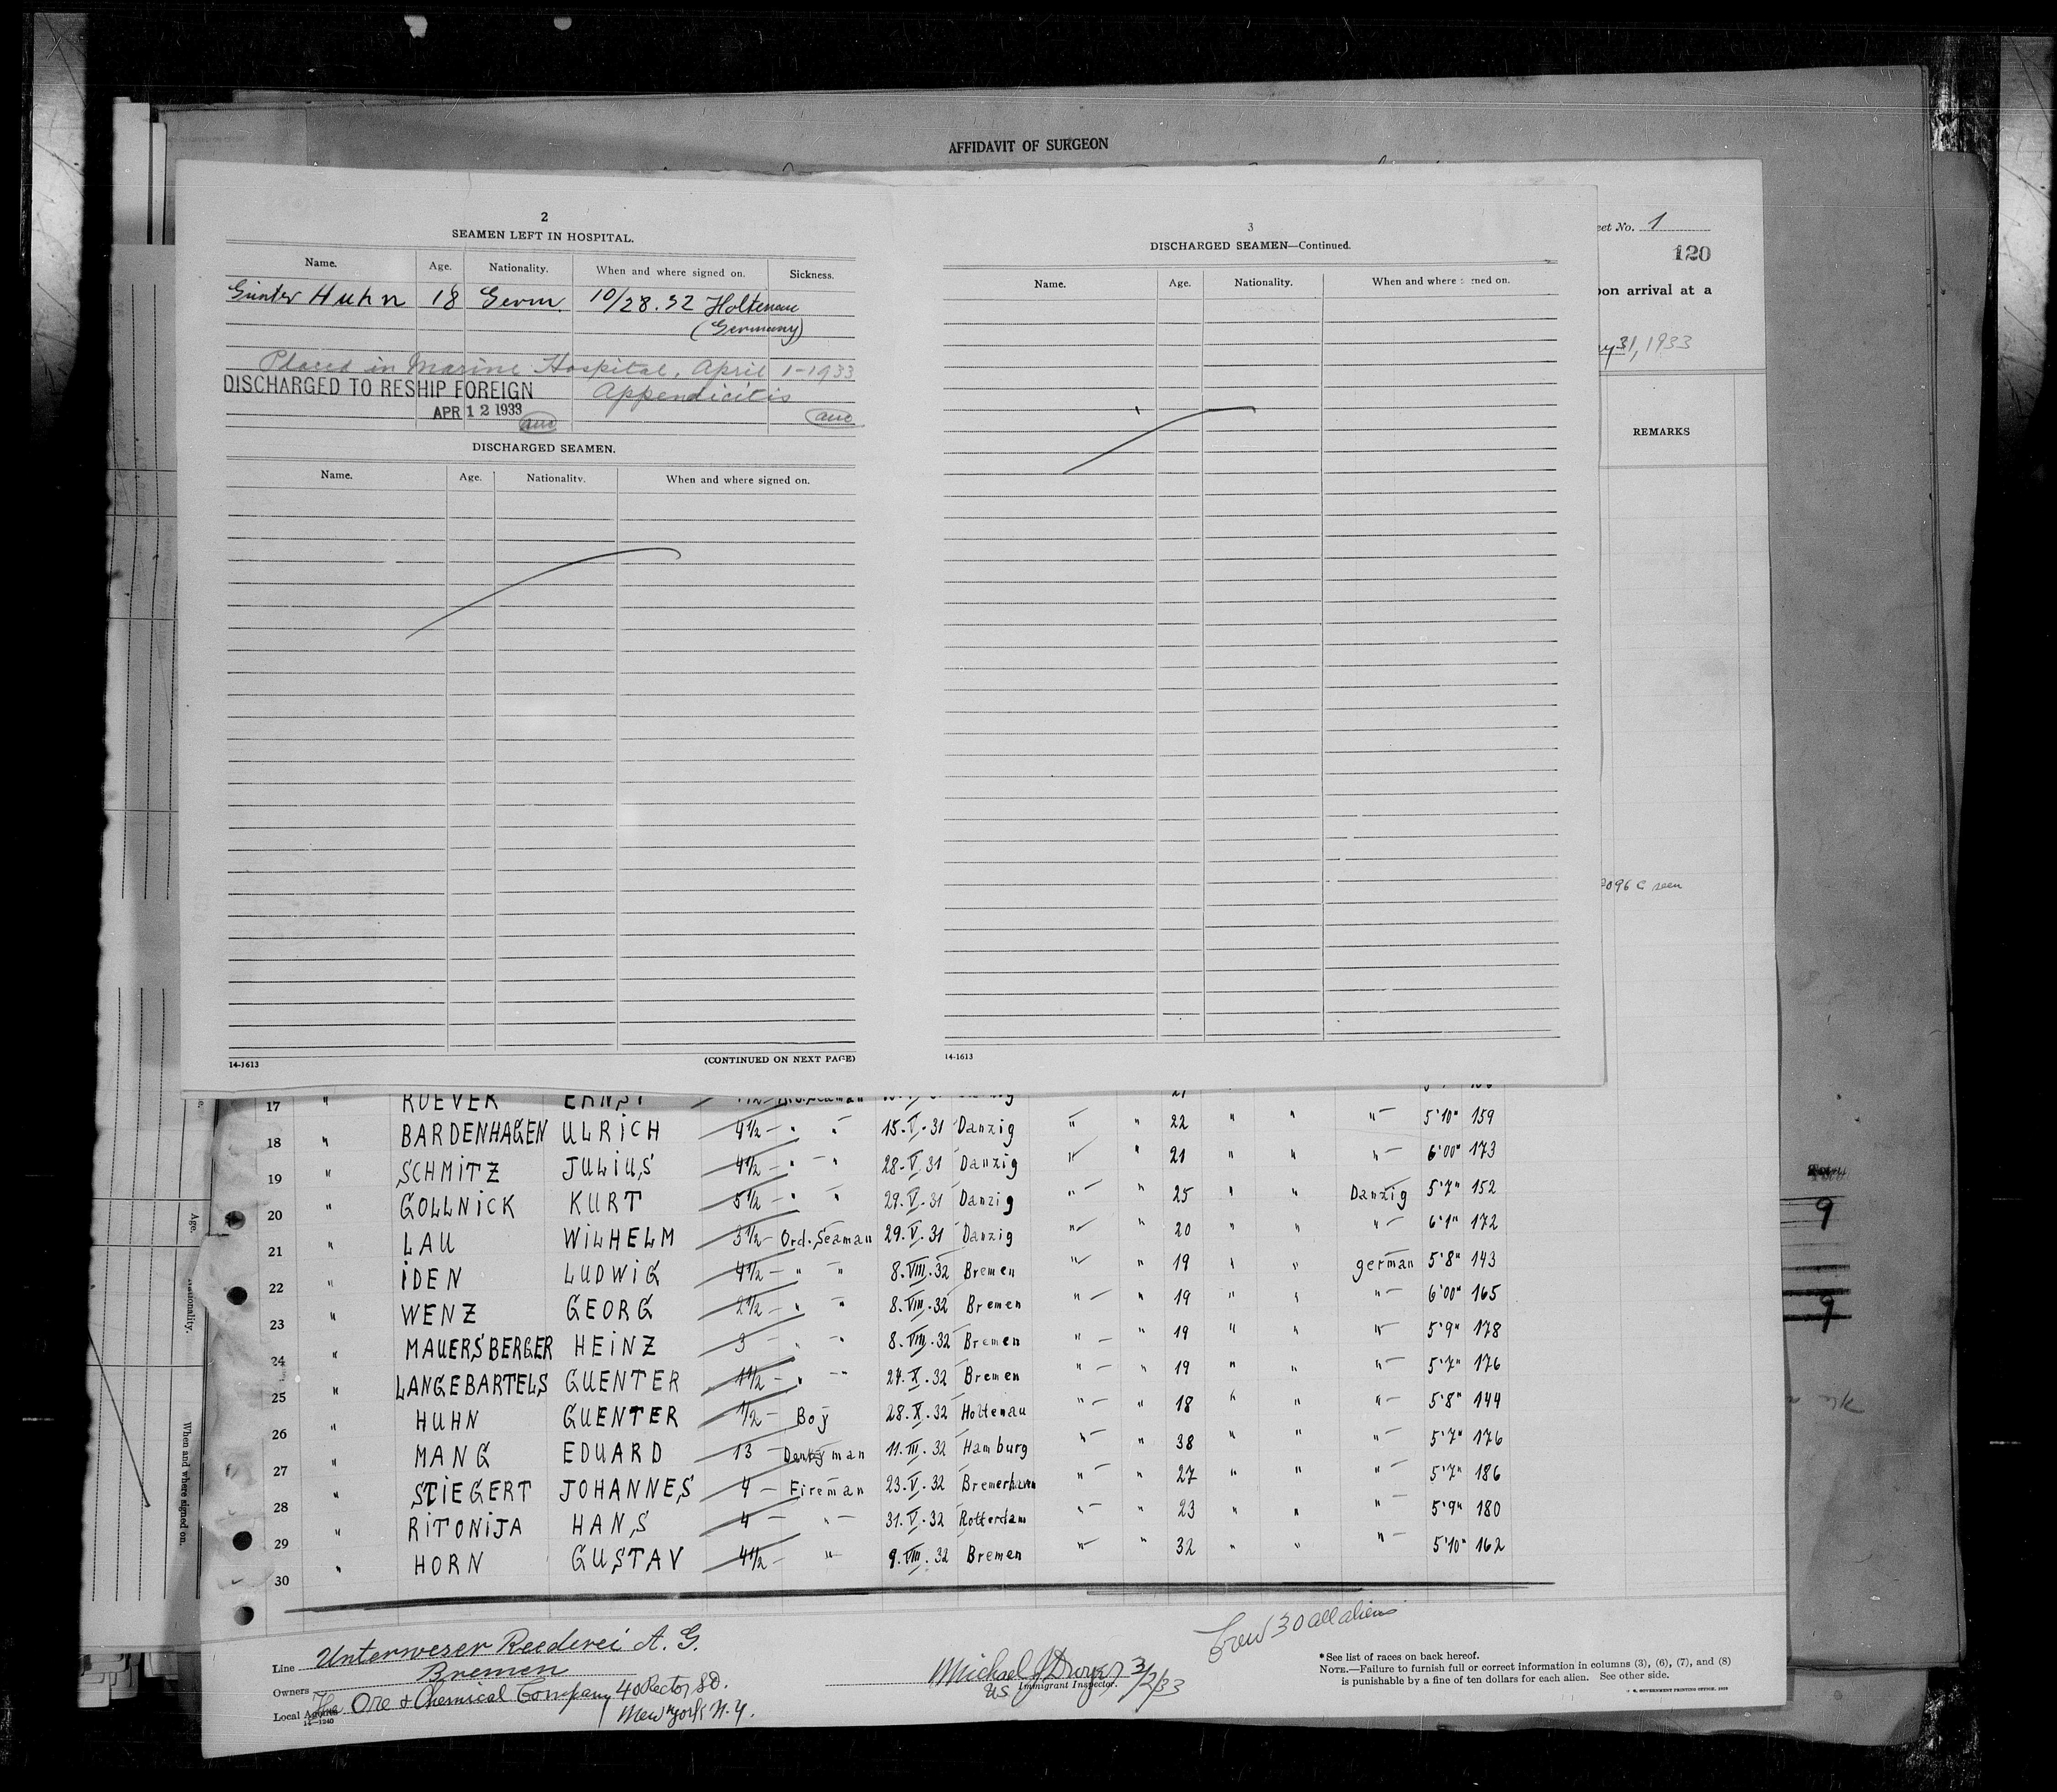 AFFIDAVIT OF SURGEON
2
SEAMEN LEFT IN HOSPITAL.
Name. Age. Nationality. When and where signed on. Sickness.
Günter Huhn 18 Germ. 10/28.32 Holtenau
(Germany)
Placed in Marine Hospital, April 1-1933
DISCHARGED TO RESHIP FOREIGN Appendicitis
APR 12 1933
DISCHARGED SEAMEN.
Name. Age. Nationality. When and where signed on.
14-1613 (CONTINUED ON NEXT PAGE)
3
DISCHARGED SEAMEN—Continued.
Name. Age. Nationality. When and where signed on.
14-1613
eet No. 1
120
on arrival at a
31, 1933
REMARKS
096 C seen
17 " ROEVER ERNST
18 " BARDENHAGEN ULRICH 4½ - " " 15.V.31 Danzig " " 22 " " " 5'10" 159
19 " SCHMITZ JULIUS 4½ - " " 28.V.31 Danzig " " 21 " " " 6'00" 173
20 " GOLLNICK KURT 5½ - " " 29.V.31 Danzig " " 25 " " Danzig 5'7" 152
21 " LAU WILHELM 3½ - Ord. Seaman 29.V.31 Danzig " " 20 " " " 6'1" 172
22 " IDEN LUDWIG 4½ - " " 8.VIII.32 Bremen " " 19 " " german 5'8" 143
23 " WENZ GEORG 2½ - " " 8.VIII.32 Bremen " " 19 " " " 6'00" 165
24 " MAUERSBERGER HEINZ 3 - " " 8.VIII.32 Bremen " " 19 " " " 5'9" 178
25 " LANGEBARTELS GUENTER 1½ - " " 24.X.32 Bremen " " 19 " " " 5'7" 176
26 " HUHN GUENTER ½ - Boy 28.X.32 Holtenau " " 18 " " " 5'8" 144
27 " MANG EDUARD 13 - Donkyman 11.III.32 Hamburg " " 38 " " " 5'7" 176
28 " STIEGERT JOHANNES 4 - Fireman 23.V.32 Bremerhaven " " 27 " " " 5'7" 186
29 " RITONIJA HANS 4 - " 31.V.32 Rotterdam " " 23 " " " 5'9" 180
30 " HORN GUSTAV 4½ - " 9.VIII.32 Bremen " " 32 " " " 5'10" 162
Crew 30 all aliens
Line Unterweser Reederei A. G.
Owners Bremen
Local Agents The Ore & Chemical Company, 40 Rector St.
New York N.Y.
14-1240
Michael J Dwyer 3/2/33
US Immigrant Inspector.
*See list of races on back hereof.
NOTE.—Failure to furnish full or correct information in columns (3), (6), (7), and (8)
is punishable by a fine of ten dollars for each alien. See other side.
Age.
Nationality.
When and where signed on.
9
9